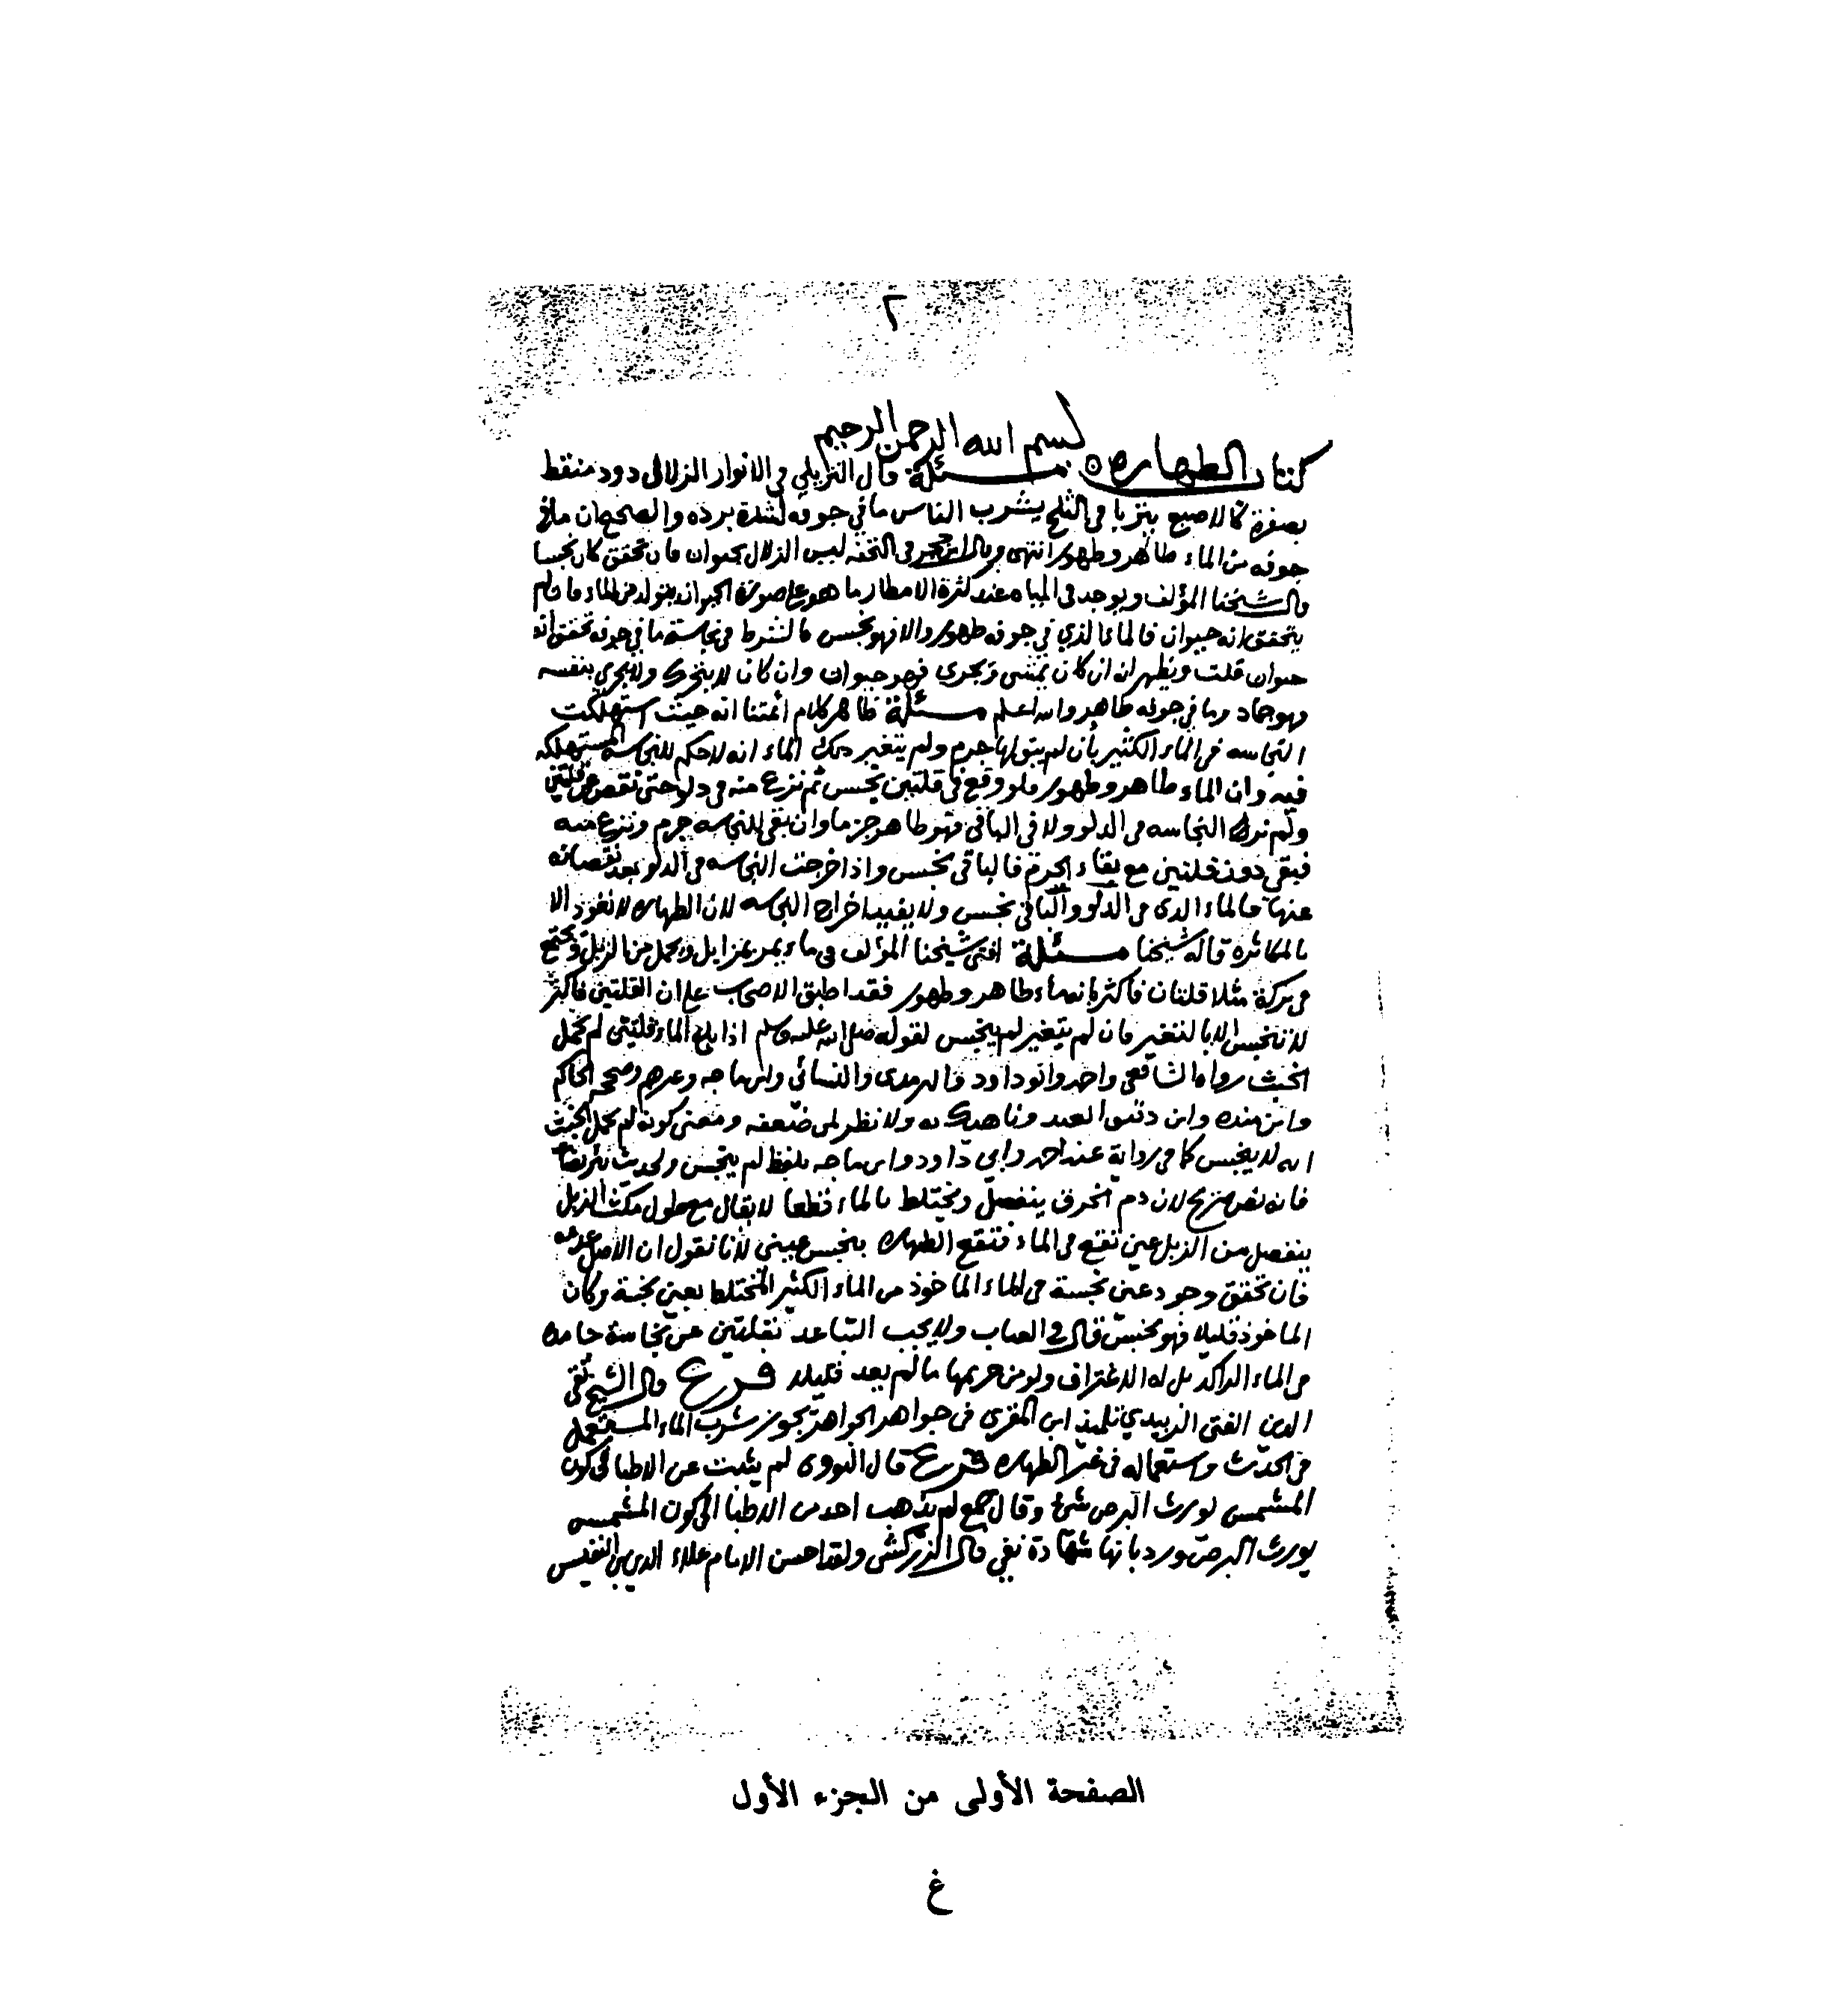 ٢
بسم الله الرحمن الرحيم
كتاب الطهاره مسئلة قال في الانوار الزلالى دود منقط
بصفرة كالاصبع يتربا في الثلج يشرب الناس ما في جوفه لشدة برده والصحيح ان ما في
جوفه من الماء طاهر وطهور انتهى وقال ابن حجر في التحفه ليس الزلال بحيوان فان تحقق كان نجسا
قال شيخنا المؤلف ويوجد في المياه عند كثرة الامطار ما هو على صورة الحيوان يتولد من الماء فما لم
يتحقق انه حيوان فالماء الذي في جوفه طهور والا فهو نجس فالشرط في نجاسة ما في جوفه تحقق انه
حيوان قلت ويظهر انه ان كان يمشى ويجرى فهو حيوان وان كان لا يتحرك ولا يجري بنفسه
فهو جماد وما في جوفه طاهر والله اعلم مسئلة ظاهر كلام أئمتنا انه حيث استهلكت
النجاسه في الماء الكثير بأن لم يبق لها جرم ولم يتغير ذلك الماء انه لا حكم للنجاسه المستهلكه
فيه وان الماء طاهر وطهور فلو وقع في قلتين نجس ثم نزع منه في دلو حتى نقص عن قلتين
ولم نرى النجاسه في الدلو ولا في الباقي فهو طاهر جزما وان بقي للنجاسه جرم ونزع منه
فبقي دون قلتين مع بقاء الجرم فالباقي نجس واذا خرجت النجاسه في الدلو بعد نقصانه
عنها فالماء الذى في الدلو والباقي نجس ولا يفيد اخراج النجاسه لان الطهاره لا تعود الا
بالمكاثره قاله شيخنا مسئلة افتى شيخنا المؤلف في ماء يمر بمزابل ويحمل من الزبل ويجتمع
في بركة مثلا قلتان فأكثر بانه ماء طاهر وطهور فقد اطبق الاصحاب على ان القلتين فأكثر
لا تنجس الا بالتغير فان لم يتغير لم ينجس لقوله صلى الله عليه وسلم اذا بلغ الماء قلتين لم يحمل
الخبث رواه الشافعي واحمد وابو داود والترمدى والنسائى وابن ماجه وغيرهم وصححه الحاكم
وابن منده وابن دقيق العيد وناهيك به ولا نظر لمن ضعفه ومعنى كونه لم يحمل الخبث
انه لا ينجس كما في رواية عند احمد وابي داود وابن ماجه بلفظ لم ينجس ولحديث بئر بضاعه
فانه نص صريح لان دم الخرق ينفصل ويختلط بالماء قطعا لا يقال مع طول مكث الزبل
ينفصل من الزبل عين تقع في الماء فتقع الطهاره بنجس عينى لأنا نقول ان الاصل عدمه
فان تحقق وجود عين نجسة في الماء المأخوذ من الماء الكثير المختلط بعين نجسة وكان
الماخوذ قليلا فهو نجس قال في العباب ولا يجب التباعد بقلتين عن نجاسة جامده
في الماء الراكد بل له الاغتراف ولو من حريمها ما لم يعد قليلا فرع قال الشيخ تقى
الدين الفتى الزبيدي تلميذ ابن المقري في جواهر الجواهر يجوز شرب الماء المستعمل
في الحدث واستعماله في غير الطهاره فرع قال النووى لم يثبت عن الاطبا في كون
المشمس يورث البرص شئ وقال جمع لم يذهب احد من الاطبا الى كون المشمسه
يورث البرص ورد بانها شهادة نفي قال الزركشى ولقد احسن الامام علاء الدين بن النفيس
الصفحة الأولى من الجزء الأول
غ